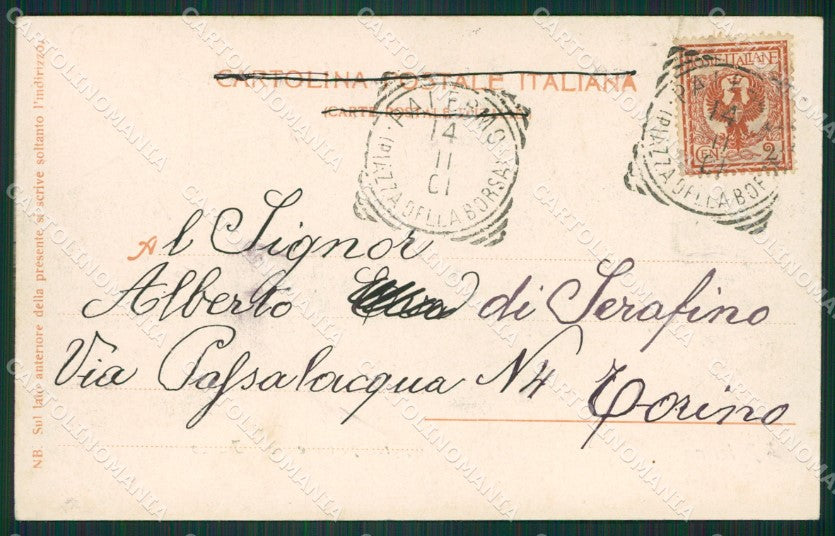 CARTOLINA POSTALE ITALIANA
CARTE POSTALE
PALERMO
14
11
01
(PIAZZA DELLA BORSA)
POSTE ITALIANE
CENT. 2
PA
14
11
(PIAZZA DELLA BOR
Al Signor
Alberto di Serafino
Via Passalacqua N 4
Torino
NB. Sul lato anteriore della presente si scrive soltanto l'indirizzo.
CARTOLINOMANIA